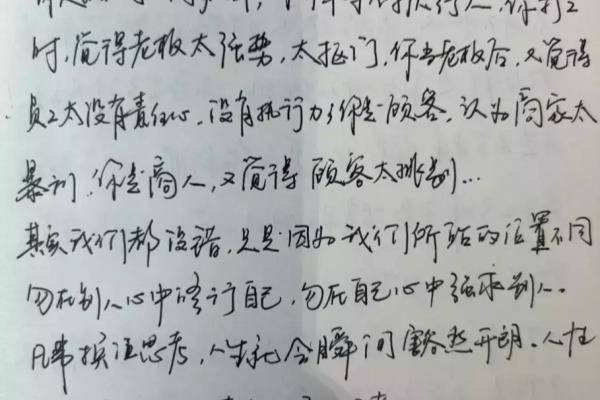 时,觉得老板太强势,太抠门,你当老板后,又觉得
员工太没有责任心,没有执行力;你是顾客,认为商家太
暴利,你是商人,又觉得顾客太挑剔...
其实我们都没错,只是因为我们所站的位置不同
勿在别人心中修行自己,勿在自己心中强求别人。
凡事换位思考,人生就会瞬间豁然开朗。人性